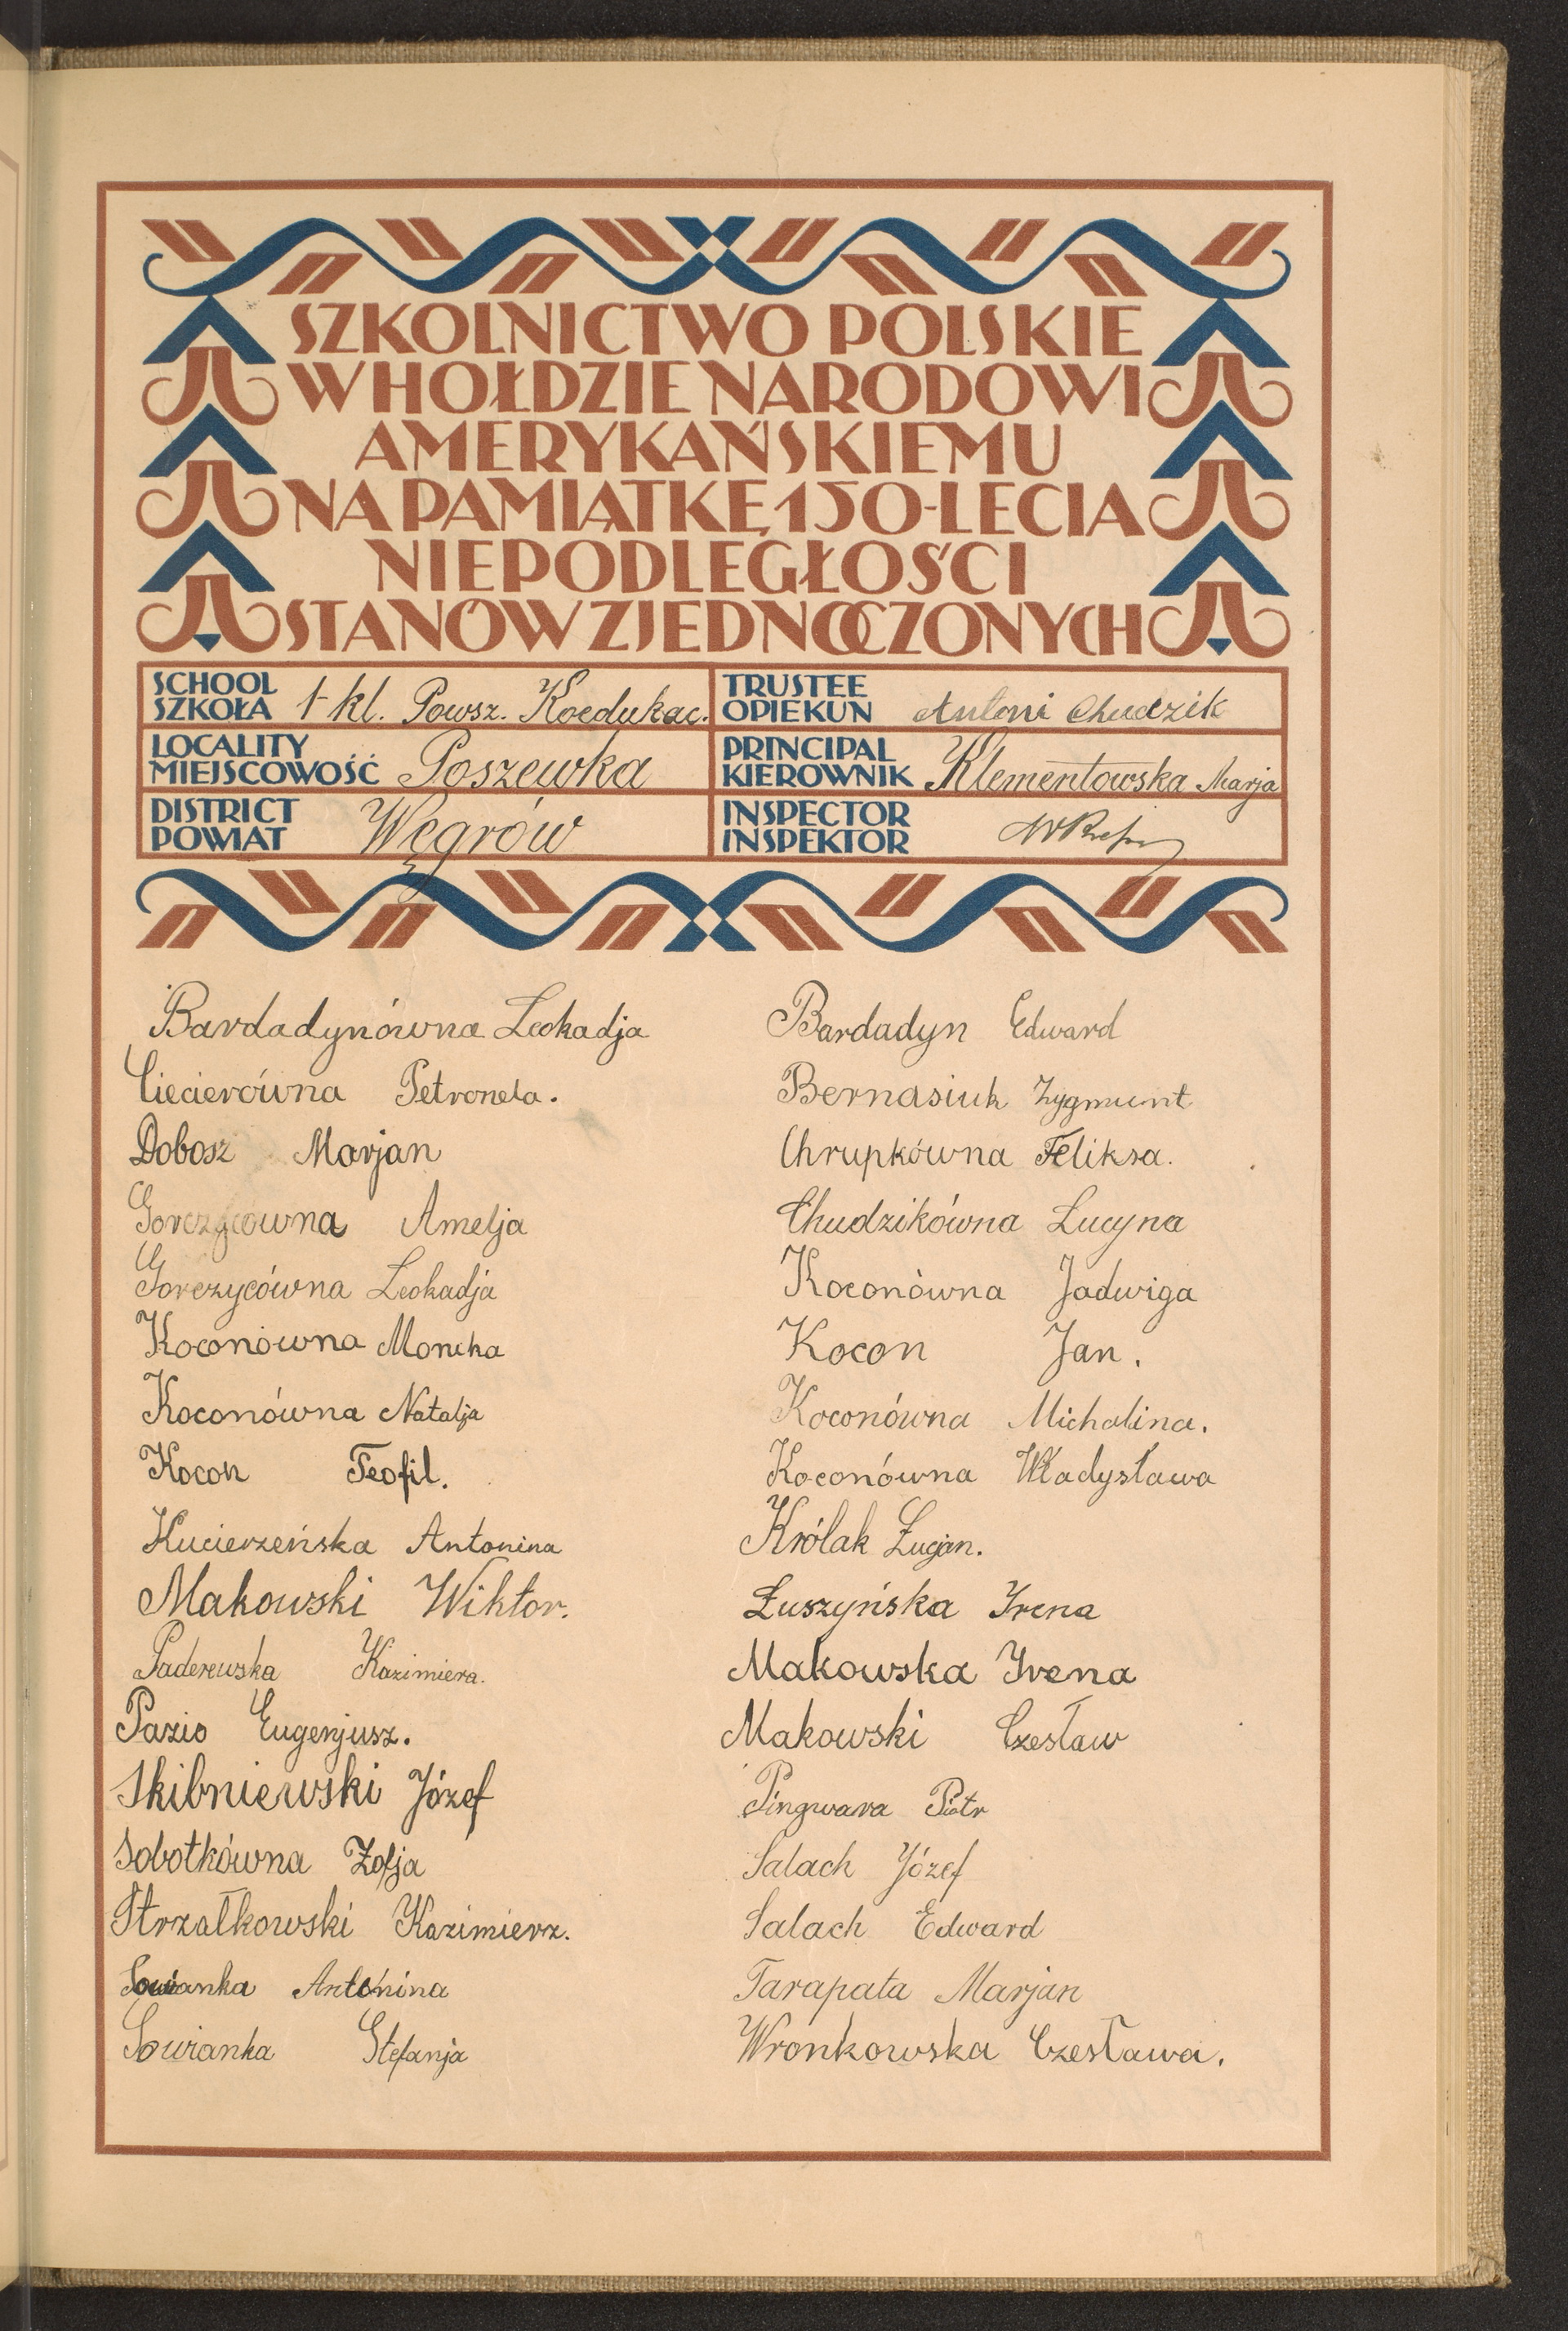 SZKOLNICTWO POLSKIE
W HOŁDZIE NARODOWI
AMERYKAŃSKIEMU
NA PAMIĄTKĘ 150-LECIA
NIEPODLEGŁOŚCI
STANÓW ZJEDNOCZONYCH
SCHOOL
SZKOŁA 1 kl. Powsz. Koedukac.
TRUSTEE
OPIEKUN Antoni Chudzik
LOCALITY
MIEJSCOWOŚĆ Poszewka
PRINCIPAL
KIEROWNIK Klementowska Marja
DISTRICT
POWIAT Węgrów
INSPECTOR
INSPEKTOR
Bardadynówna Leokadja
Ciecierówna Petronela.
Dobosz Marjan
Gorczycówna Amelja
Gorczycówna Leokadja
Koconówna Monika
Koconówna Natalja
Kocon Teofil.
Kucierzeńska Antonina
Makowski Wiktor.
Paderewska Kazimiera.
Pazio Eugenjusz.
Skibniewski Józef
Sobotkówna Zofja
Strzałkowski Kazimierz.
Sowianka Antonina
Sowianka Stefanja
Bardadyn Edward
Bernasiuk Zygmunt
Chrupkówna Feliksa.
Chudzikówna Lucyna
Koconówna Jadwiga
Kocon Jan.
Koconówna Michalina.
Koconówna Władysława
Królak Łucjan.
Łuszyńska Irena
Makowska Irena
Makowski Czesław
Pingwara Piotr
Salach Józef
Salach Edward
Tarapata Marjan
Wronkowska Czesława.